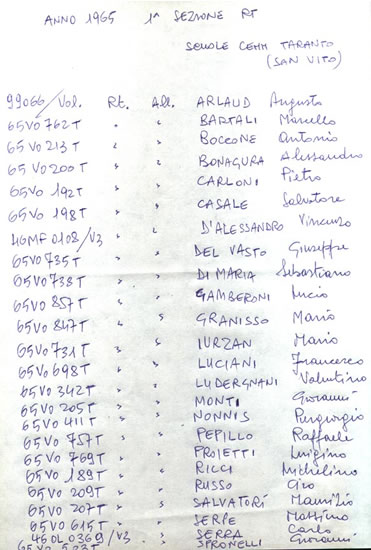 ANNO 1965 1ª SEZIONE RT
SCUOLE CEMM TARANTO
(SAN VITO)
99066/Vol. Rt. All. ARLAUD Augusto
65V0762T " " BARTALI Marcello
65V0213T " " BOCCONE Antonio
65V0200T " " BONAGURA Alessandro
65V0192T " " CARLONI Pietro
65V0198T " " CASALE Salvatore
46MF0108/V3 " " D'ALESSANDRO Vincenzo
65V0735T " " DEL VASTO Giuseppe
65V0738T " " DI MARIA Sebastiano
65V0857T " " GAMBERONI Lucio
65V0847T " " GRANISSO Mario
65V0731T " " IURZAN Mario
65V0698T " " LUCIANI Francesco
65V0342T " " LUDERGNANI Valentino
65V0205T " " MONTI Giovanni
65V0411T " " NONNIS Piergiorgio
65V0757T " " PEPILLO Raffaele
65V0769T " " PROIETTI Luigino
65V0189T " " RICCI Michelino
65V0209T " " RUSSO Ciro
65V0207T " " SALVATORI Maurizio
65V0615T " " SERPE Massimo
45OL0369/V3 " " SERRA Carlo
SPRONELLI Giovanni